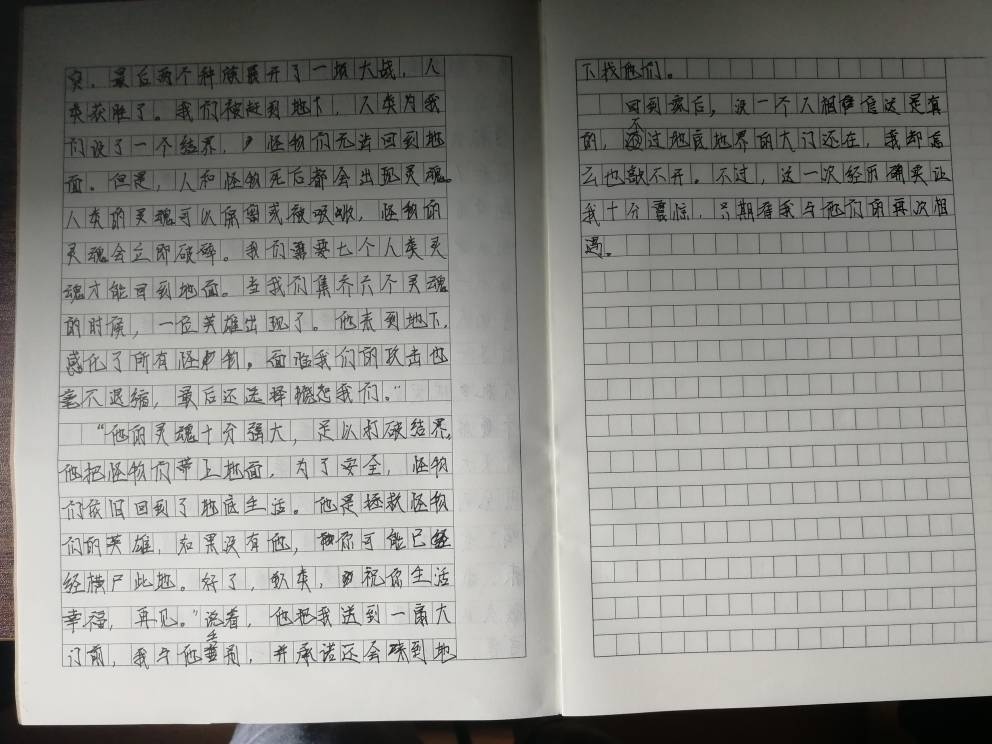 突，最后两个种族展开了一场大战，人
类获胜了。我们被赶到地下，人类为我
们设了一个结界，怪物们无法回到地
面。但是，人和怪物死后都会出现灵魂。
人类的灵魂可以保留或被吸收，怪物的
灵魂会立即破碎。我们需要七个人类灵
魂才能回到地面。当我们集齐六个灵魂
的时候，一位英雄出现了。他来到地下，
感化了所有怪物。面临我们的攻击也
毫不退缩，最后还选择饶恕我们。”
“他的灵魂十分强大，足以打破结界。
他把怪物们带上地面，为了安全，怪物
们依旧回到了地底生活。他是拯救怪物
们的英雄，如果没有他，你可能已经
经横尸此地。好了，人类，祝你生活
幸福，再见。”说着，他把我送到一扇大
门前，我与他告别，并承诺还会来到地
下找他们。
回到家后，没一个人相信这是真
的，不过地底地界的大门还在，我却怎
么也敲不开。不过，这一次经历确实让
我十分震惊，只期待我与他们的再次相
遇。